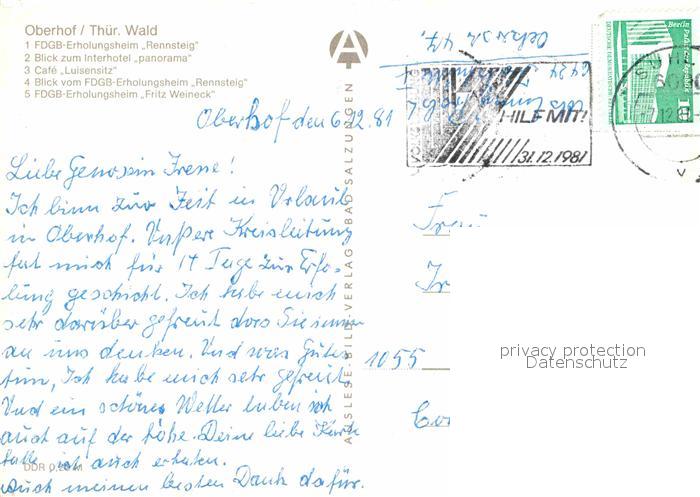 Oberhof / Thür. Wald
1 FDGB-Erholungsheim „Rennsteig"
2 Blick zum Interhotel „panorama"
3 Café „Luisensitz"
4 Blick vom FDGB-Erholungsheim „Rennsteig"
5 FDGB-Erholungsheim „Fritz Weineck"
Oberhof den 6.12.81
Liebe Genossin Irene!
Ich binn zur Zeit in Urlaub
in Oberhof. Unßere Kreisleitung
hat mich für 14 Tage zur Erho-
lung geschickt. Ich habe mich
sehr darüber gefreut das Sie immer
an uns denken. Und was Gutes
tun, Ich habe mich sehr gefreut,
Und ein schönes Wetter haben wir
auch auf der höhe. Deine liebe Karte
habe ich auch erhalten.
auch meinen besten Dank dafür.
DDR 0,20 M
AUSLESE-BILD-VERLAG BAD SALZUNGEN
HILF MIT!
31.12.1981
SUHL
Berlin
DEUTSCHE DEMOKRATISCHE REPUBLIK
10
Frau
Ir
1055
privacy protection
Datenschutz